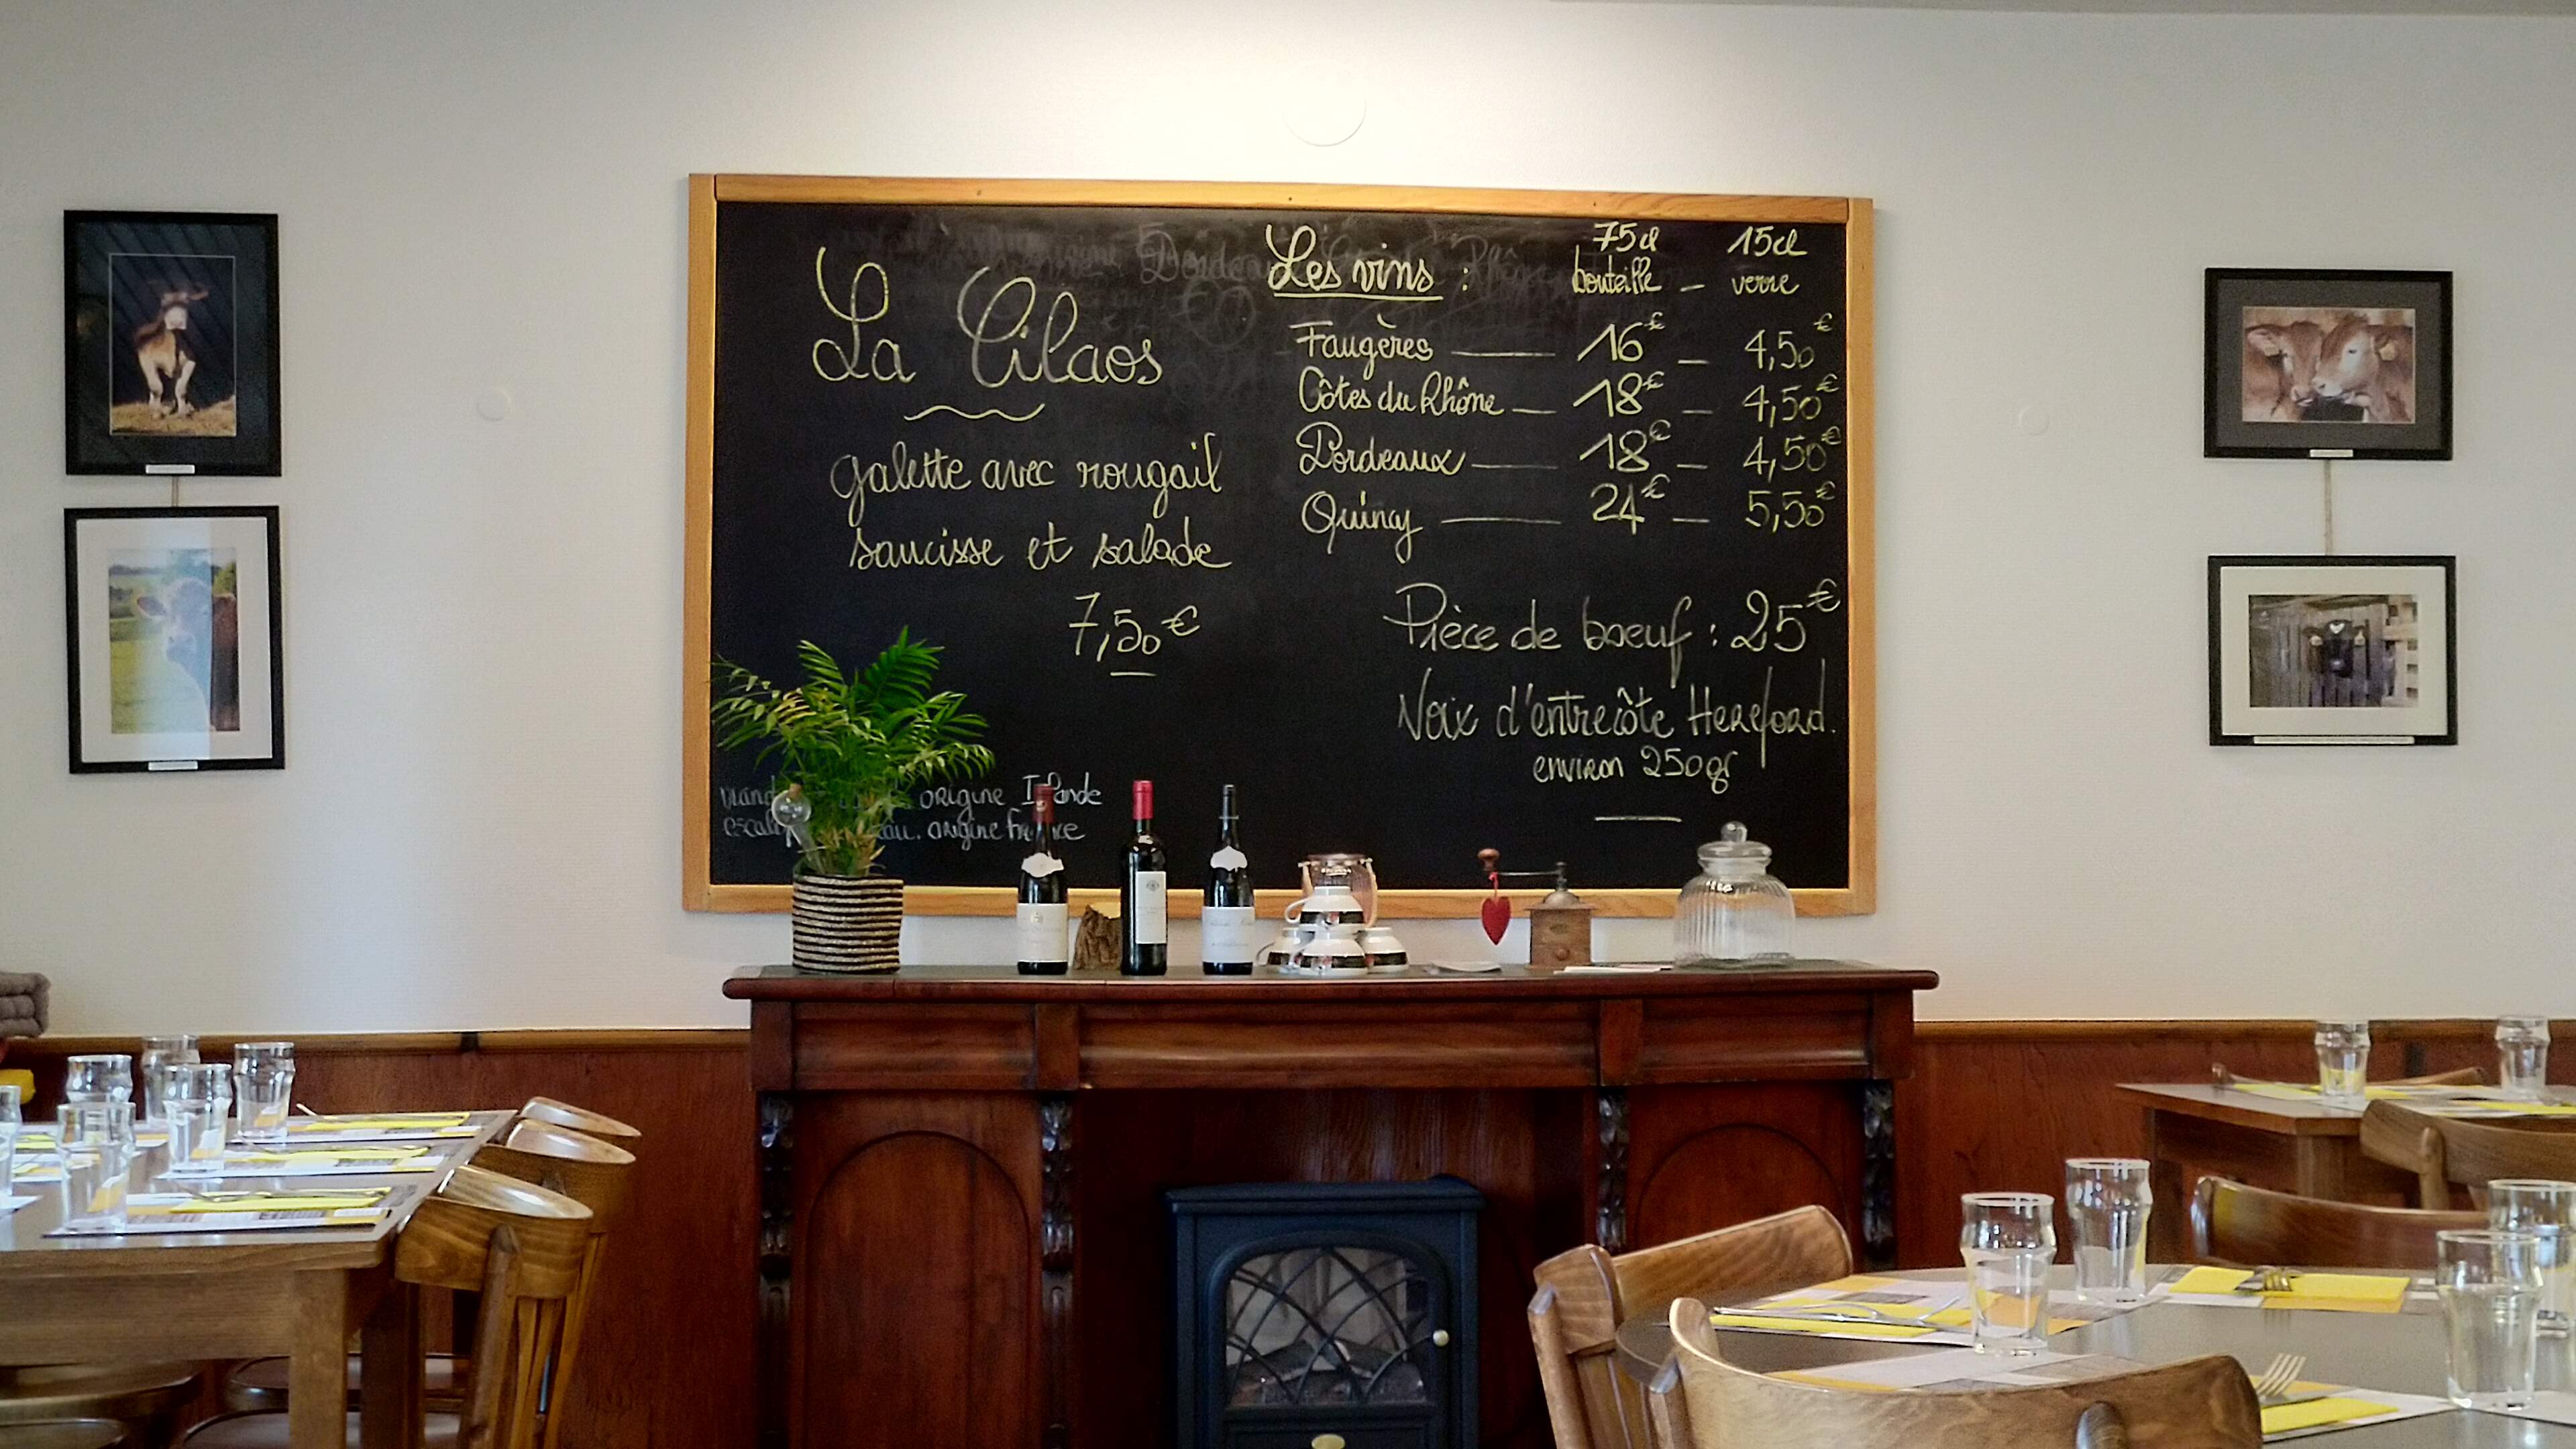 La Cilaos
galette avec rougail
saucisse et salade
7,50€
origine Irlande
origine France
Les vins :
75cl 15cl
bouteille – verre
Faugères — 16€ – 4,50€
Côtes du Rhône — 18€ – 4,50€
Bordeaux — 18€ – 4,50€
Quincy — 24€ – 5,50€
Pièce de boeuf : 25€
Noix d'entrecôte Hereford.
environ 250gr